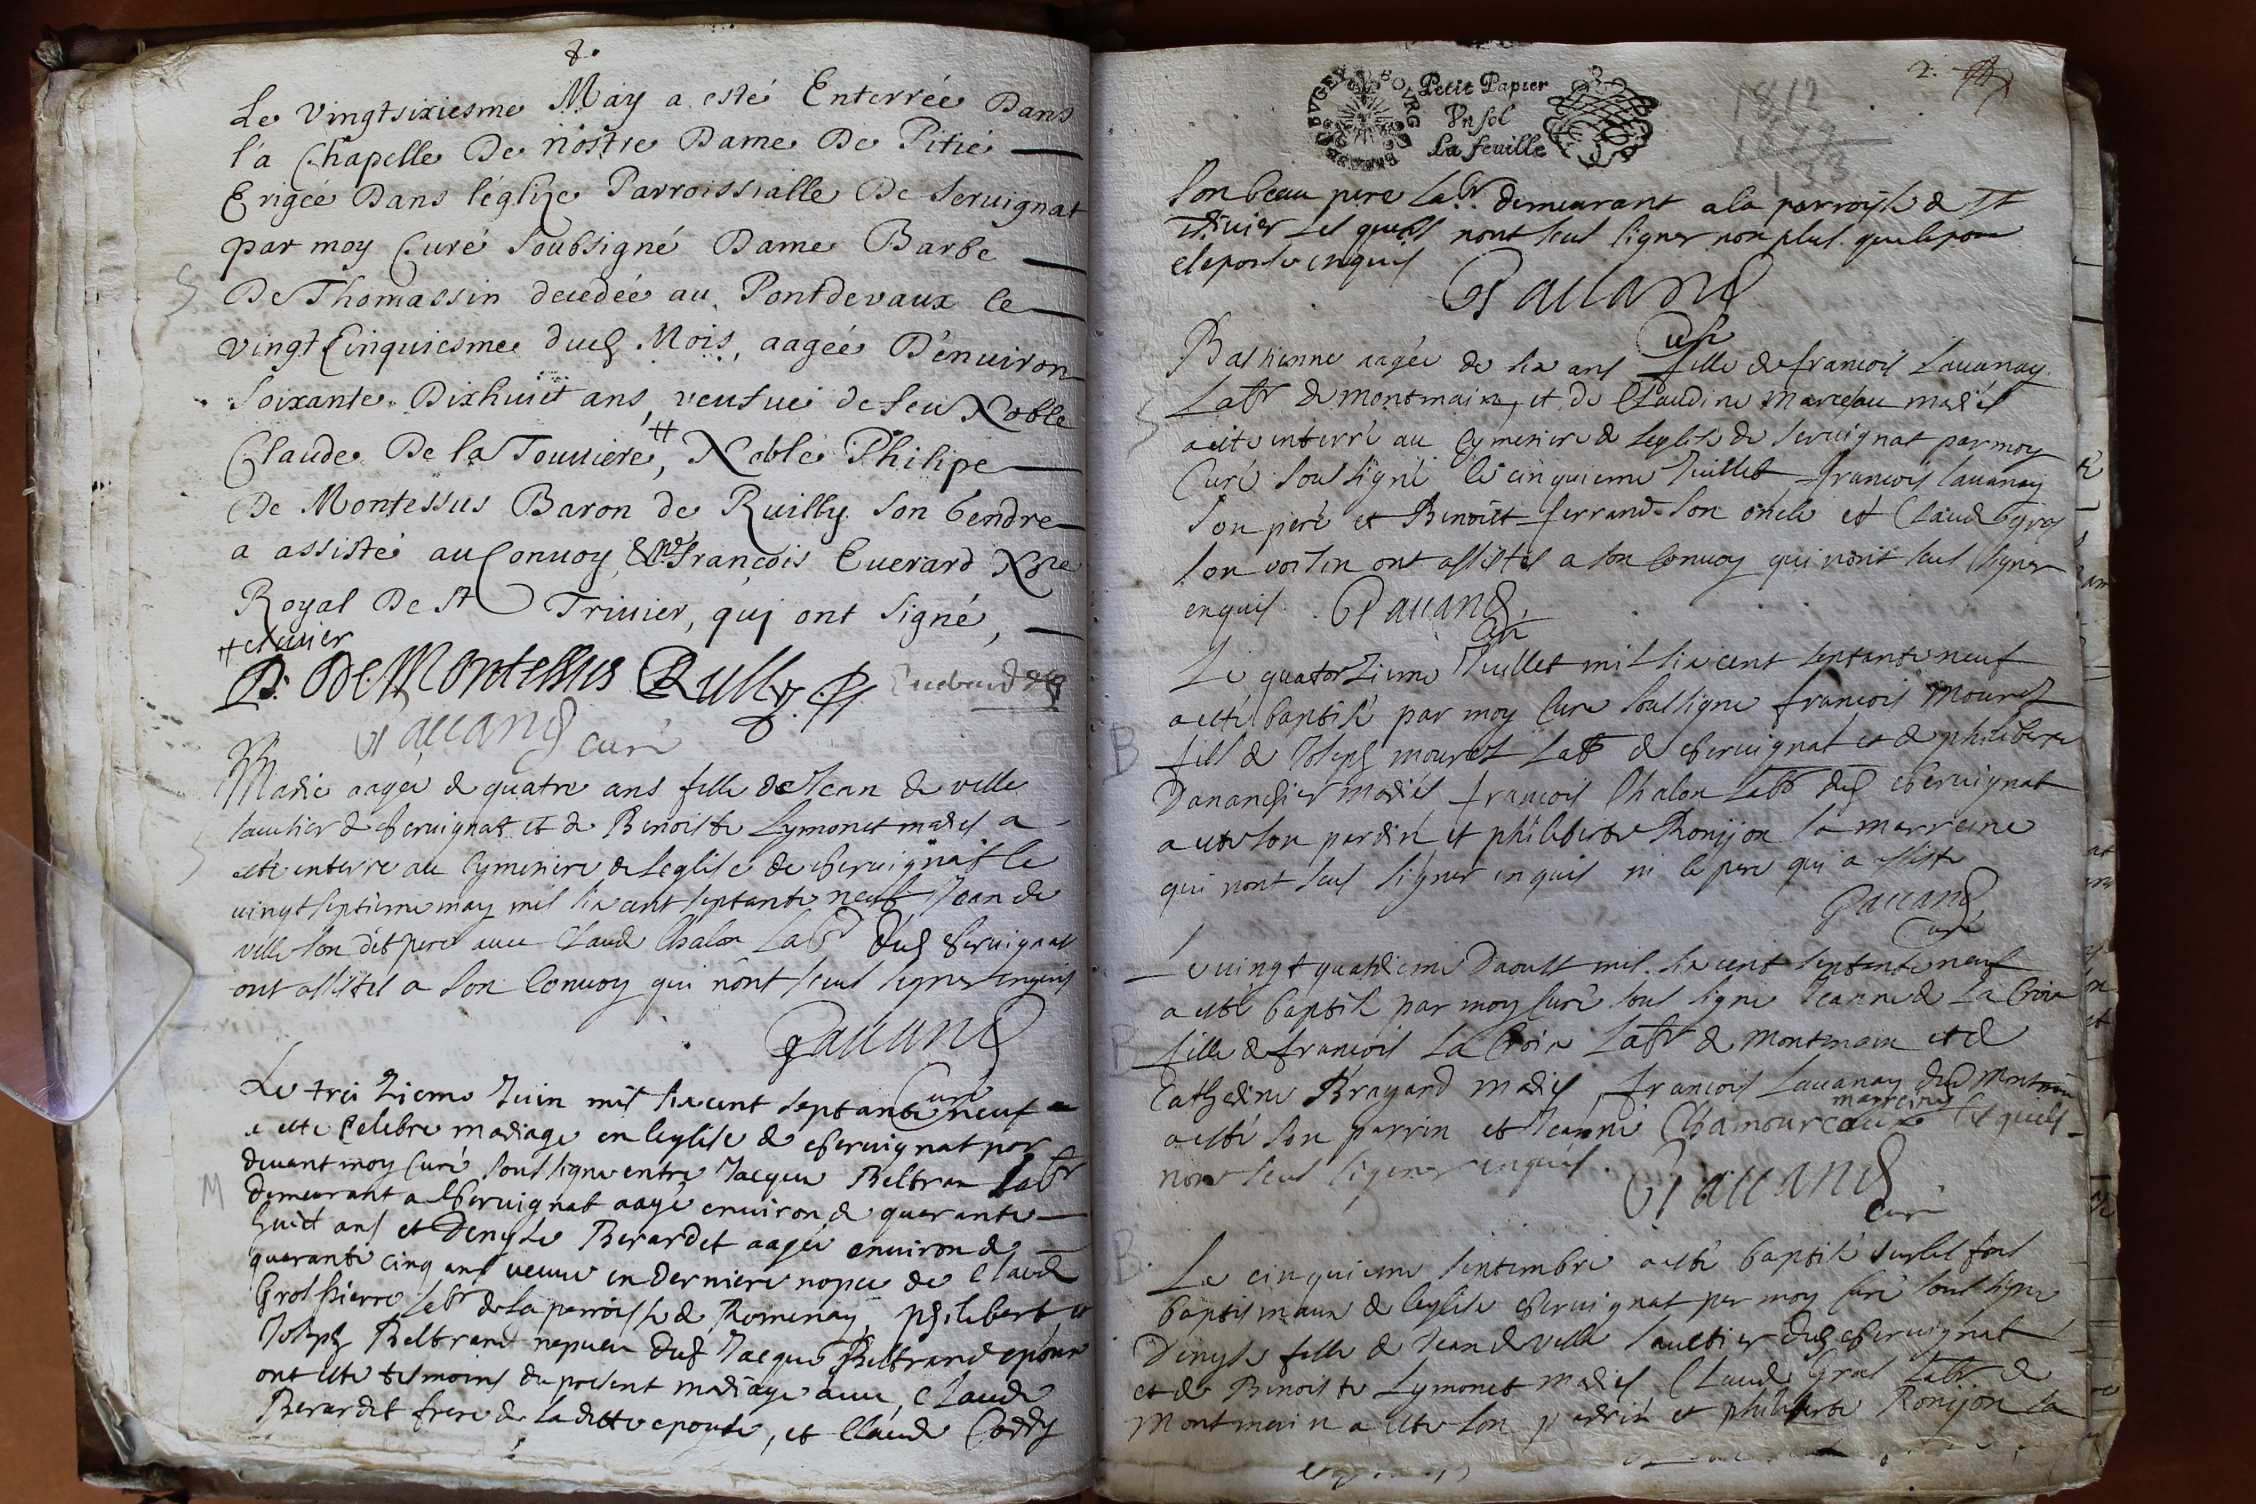 Le vingtsixiesme May a esté Enterrée Dans
la Chapelle De nostre Dame De Pitié
Erigée Dans l'églize Parroissialle De Seruignat
par moy Curé Soubsigné Dame Barbe
De Thomassin decedée au Pontdevaux le
vingt Cinquiesme dud Mois, aagée D'enuiron
Soixante Dixhuict ans, veufue de feu Noble
Claude De la Touuiere, Noble Philipe
De Montessus Baron de Ruilly son Gendre
a assisté au Conuoy, & Mr François Euerard Nore
Royal De St Triuier, quj ont signé,
P. De Montessus Rully
Paccand curé
Marie aagee de quatre ans fille de Jean de ville
de Cheruignat et de Benoiste Lymonet maries a
esté enterre au Cymetiere de Leglise de Cheruignat le
uingt septieme may mil six cent septante neuf Jean de
ville son dit pere auec Claud Chalon Labr dud Cheruignat
ont assistes a son Conuoy qui n'ont sceus signer enquis
Paccand
Curé
Le treizieme Juin mil six cent septante neuf
a esté Celebre mariage en leglise de Cheruignat par
deuant moy Curé soubsigne entre Jacque Beltran Labr
demeurant a Cheruignat aagé enuiron de quarante
huict ans et Denyse Berardet aagée enuiron de
quarante cinq ans ueuue en derniere nopce de Claud
Grospierre Labr de la parroisse de Romenay, philibert et
Joseph Beltrand nepueu dud Jacque Beltrand epoux
ont esté tesmoins du present mariage auec Claude
Berardet frere de la ditte epouse, et Claude
2.
BOURG BUGEY
Petit Papier
Vn sol
La feuille
1812
son beau pere Labr demeurant a la parroisse de St
Triuier Les quels n'ont sceus signer non plus que lepoux
et epouse enquis
Paccand
Curé
Bastienne aagée de six ans fille de francois Lauanay
Labr de montmain, et de Claudine mariés
a esté enterré au Cymetiere de Leglise de Seruignat par moy
Curé sousigné le cinquieme Juillet francois Lauanay
son pere et Benoist ferrand son oncle et Claud gros
son voisin ont assistés a son Conuoy qui n'ont sceus signer
enquis. Paccand
Curé
Le quatorzieme Juillet mil six cent septante neuf
a esté baptisé par moy Curé sousigne francois mouret
fils de Joseph mouret Labr de Cheruignat et de philiberte
Dananchier mariés francois Chalon Labr dud Cheruignat
a esté son pardin et philiberte Ronjjon sa marreine
qui n'ont sceus signer enquis ni le pere qui a assisté
Paccand
Curé
Le uingt quatrieme Daoust mil six cent septante neuf
a esté baptisé par moy Curé sous signe Jeanne de La Croix
fille de francois La Croix Labr de Montmain et de
Catherine Brayard mariés, francois Lauanay dud Montmain
a esté son parrin et Jeanne marreine Les quels
n'ont sceus signer enquis.
Paccand
Curé
B
Le cinquieme septembre a esté baptisé sur les fons
baptismaux de leglise Cheruignat par moy Curé sous signe
Denyse fille de Jean de ville dud Cheruignat
et de Benoiste Lymonet mariés Claude Gros Labr de
Montmain a esté son pardin et philiberte Ronjjon sa